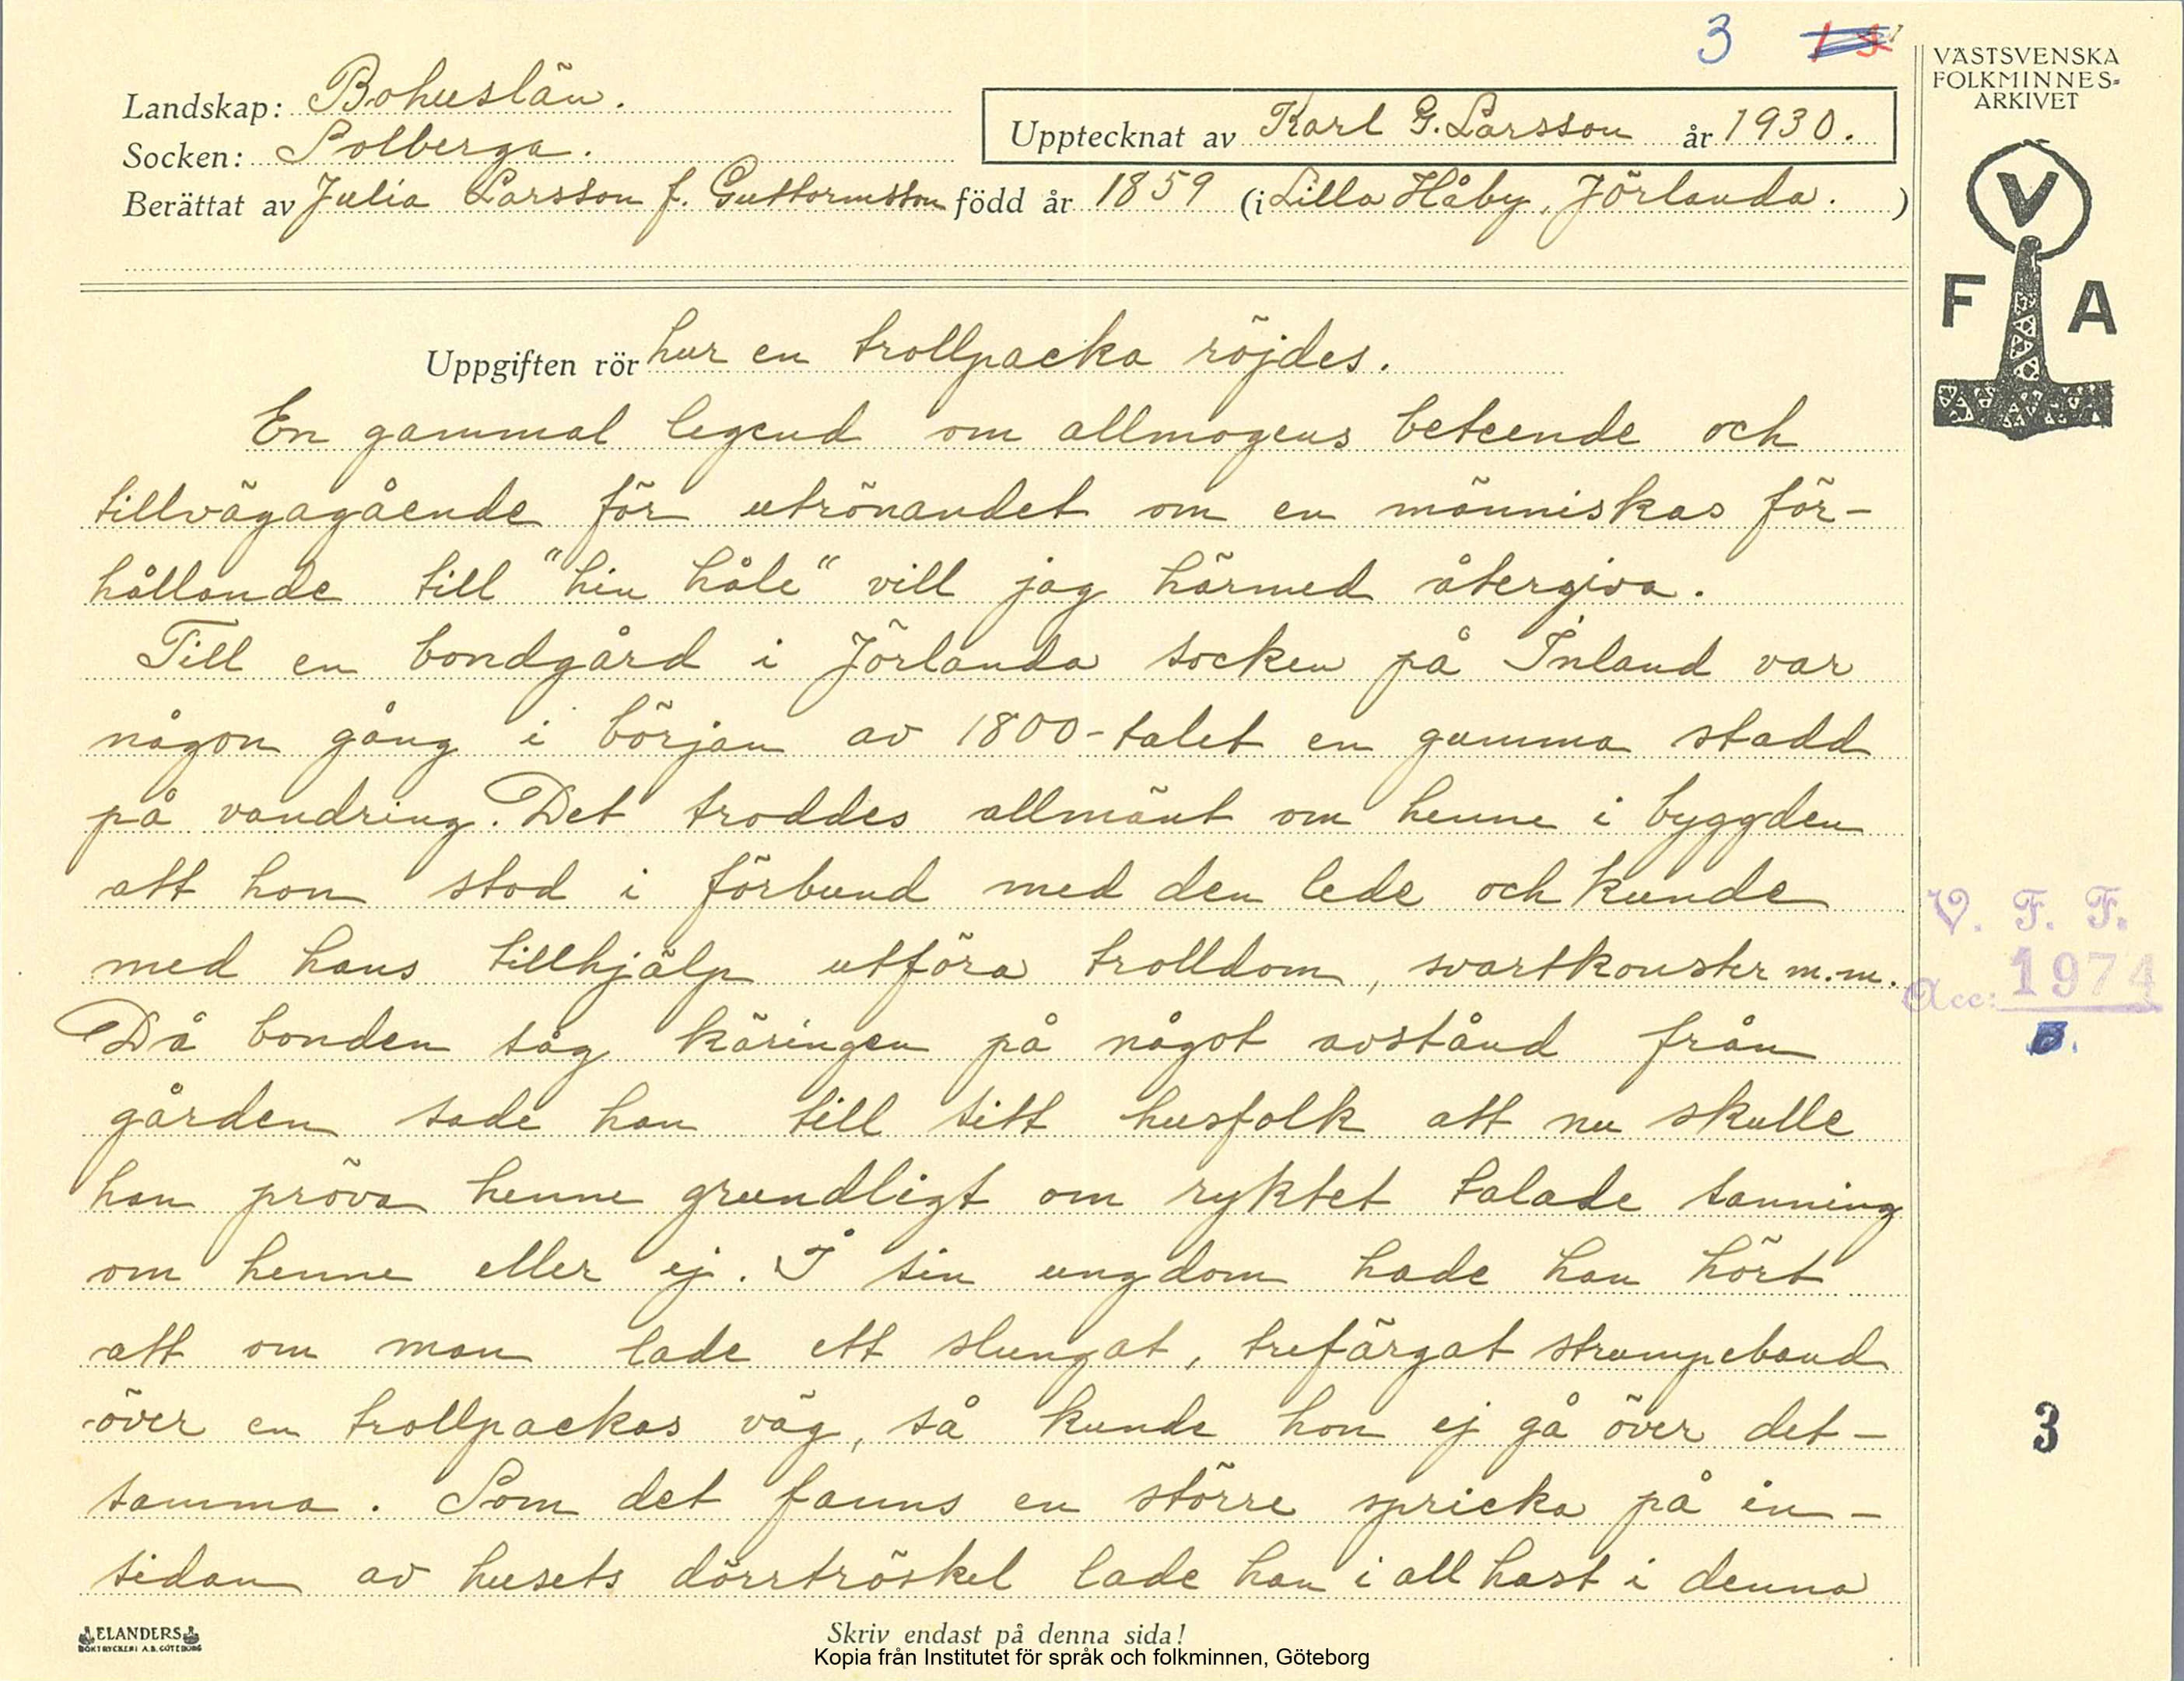 3
VÄSTSVENSKA
FOLKMINNES-
ARKIVET
Landskap: Bohuslän.
Socken: Solberga.
Upptecknat av Karl G. Larsson år 1930.
Berättat av Julia Larsson f. Guttormsson född år 1859 (i Lilla Håby, Jörlanda. )
V
F A
Uppgiften rör hur en trollpacka röjdes.
En gammal legend om allmogens beteende och
tillvägagående för utrönandet om en människas för-
hållande till "hin håle" vill jag härmed återgiva.
Till en bondgård i Jörlanda socken på Inland var
någon gång i början av 1800-talet en gumma stadd
på vandring. Det troddes allmänt om henne i byggden
att hon stod i förbund med den lede och kunde
med hans tillhjälp utföra trolldom, svartkonster m.m.
Då bonden såg käringen på något avstånd från
gården sade han till sitt husfolk att nu skulle
han pröva henne grundligt om ryktet talade sanning
om henne eller ej. I sin ungdom hade han hört
att om man lade ett slungat, trefärgat strumpeband
över en trollpackas väg, så kunde hon ej gå över det-
samma. Som det fanns en större spricka på in-
sidan av husets dörrtröskel lade han i all hast i denna
V. F. F.
Acc: 1974
3
ELANDERS
BOKTRYCKERI A.B. GÖTEBORG
Skriv endast på denna sida!
Kopia från Institutet för språk och folkminnen, Göteborg